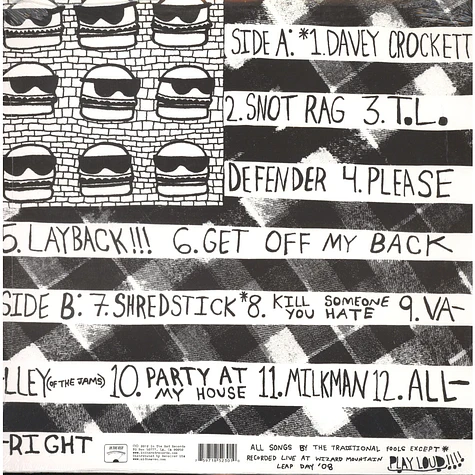 SIDE A: *1. DAVEY CROCKETT
2. SNOT RAG 3. T.L.
DEFENDER 4. PLEASE
5. LAYBACK!!! 6. GET OFF MY BACK
SIDE B: 7. SHREDSTICK *8. KILL SOMEONE YOU HATE 9. VA-
-LLEY (OF THE JAMS) 10. PARTY AT MY HOUSE 11. MILKMAN 12. ALL-
-RIGHT
ALL SONGS BY THE TRADITIONAL FOOLS EXCEPT*
RECORDED LIVE AT WIZARD MOUNTAIN
LEAP DAY '08
PLAY LOUD!!!!